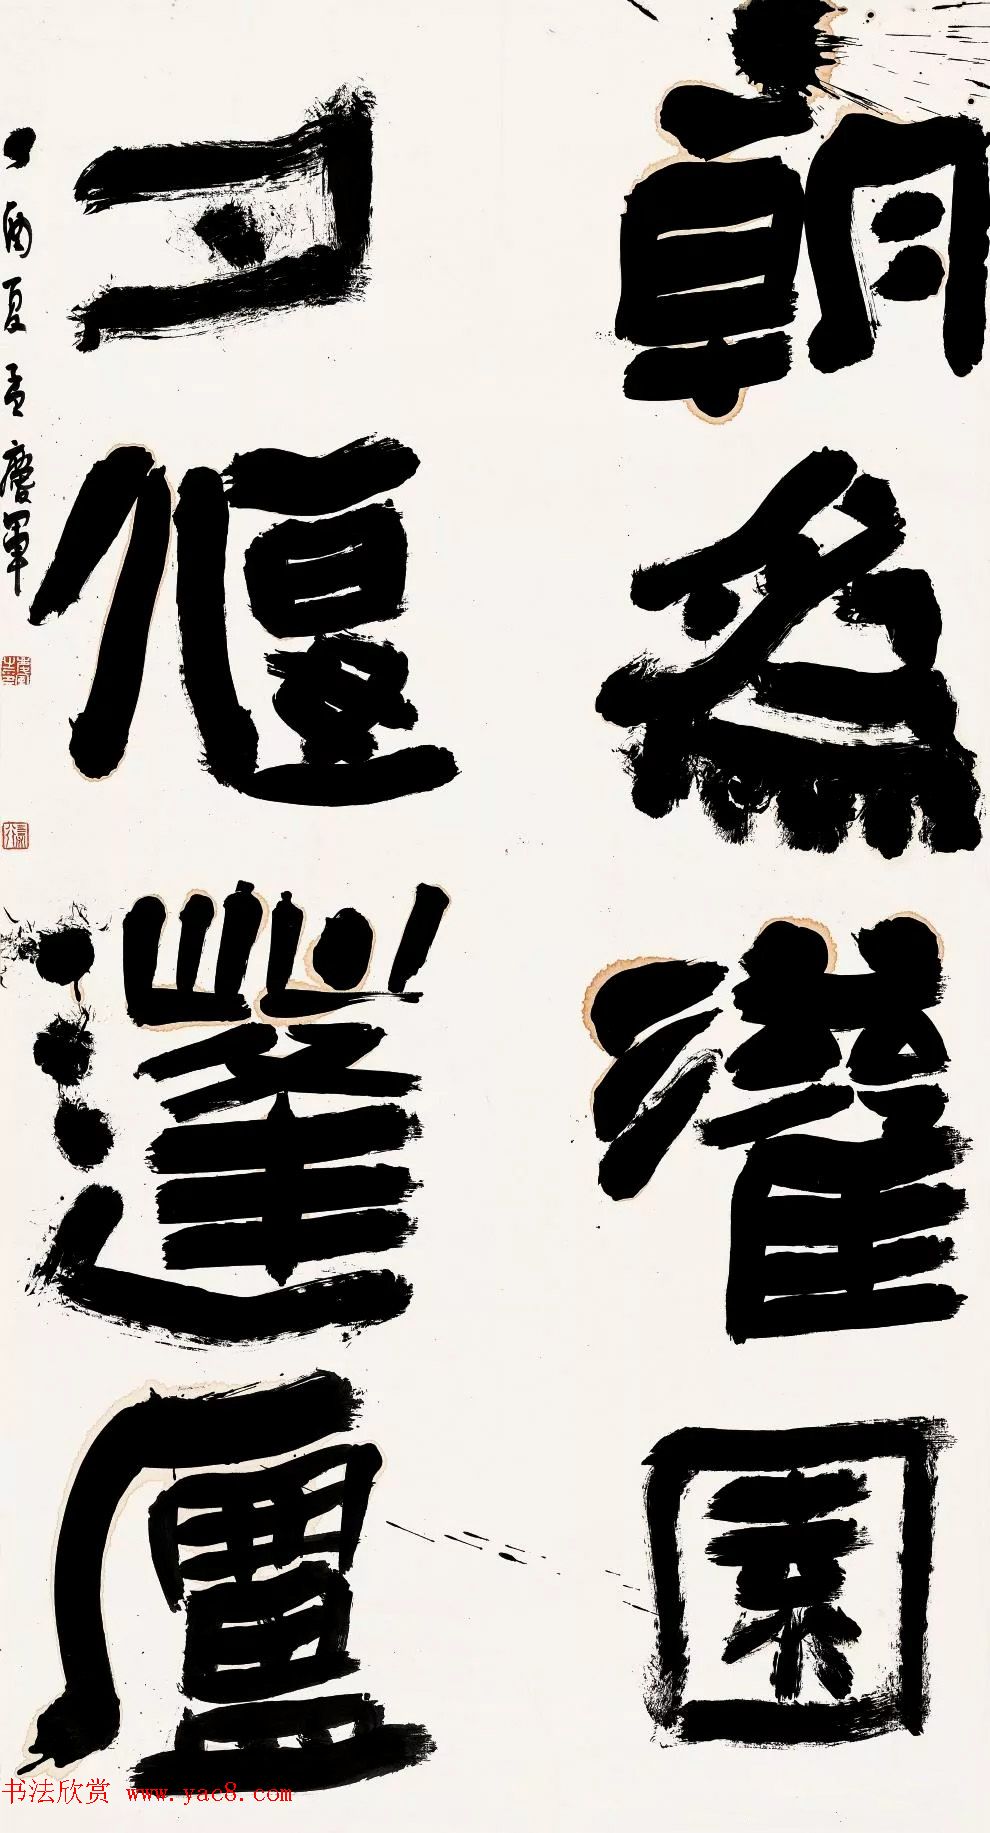 朝為灌園
夕偃蓬廬
丁酉夏孟慶軍
书法欣赏 www.yac8.com